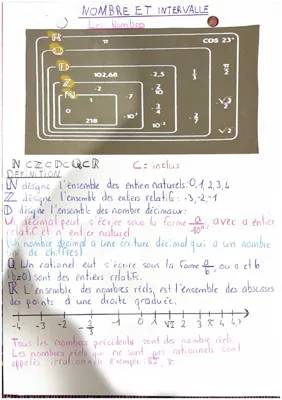 NOMBRE ET INTERVALLE
Les Nombres
R
π
COS 23°
Q
D
102,68
-2,5
Z
-2
N
1
-7
0
218
√2
ℕ ⊂ ℤ ⊂ D ⊂ Q ⊂ R ⊂ = inclus
DEFINITION
ℕ désigne l'ensemble des entiers naturels: 0, 1, 2, 3, 4
ℤ désigne l'ensemble des entiers relatifs: -3, -2, -1
D désigne l'ensemble des nombre décimaux:
Un décimal peut s'écrire sous la forme a/10ⁿ, avec a entier
relatif et n entier naturel
(Un nombre décimal a une écriture décimal qui a un nombre
fini de chiffres)
Q Un rationel eut s'écrire sous la forme a/b, ou a et b
(b≠0) sont des entiers relatifs.
R L'ensemble des nombres réels, est l'ensemble des abscisses
des points d'une droite graduée.
-4 -3 -2 -1 0 1 √2 2 3 π 4
Tous les nombres précédents sont des nombre réels.
Les nombres réels qui ne sont pas rationnels sont
appelés irrationnels exemple: √2, π